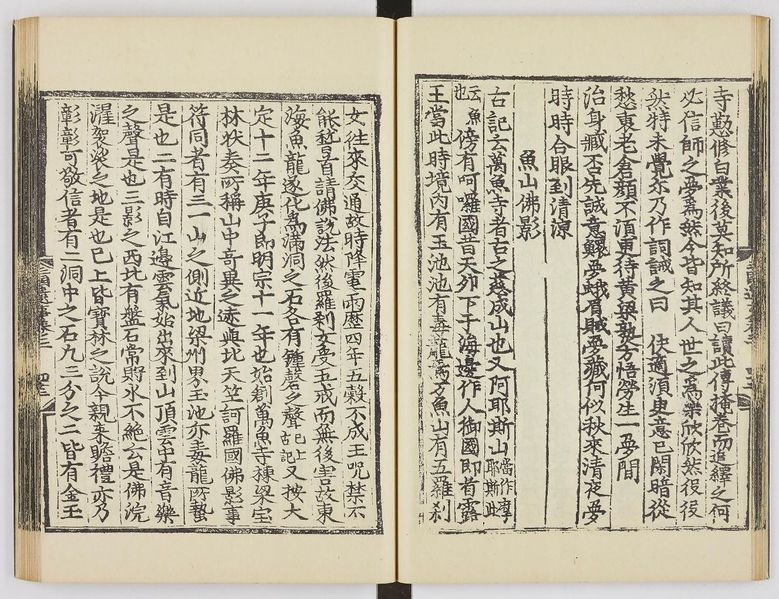 寺懃修白業後莫知所終議曰讀此傳掩卷而追繹之何
必信師之夢爲然今皆知其人世之爲樂欣欣然役役
然特未覺尒乃作詞誡之曰 快適須臾意已閑暗從
愁裏老倉顔不須更待黄粱熟方悟勞生一夢間
治身臧否先誠意鰥夢蛾眉賊夢藏何似秋來清夜夢
時時合眼到清凉
魚山佛影
古記云萬魚寺者古之慈成山也又阿耶斯山當作摩耶斯此
云魚也傍有呵囉國昔天卵下于海邊作人御國即首露
王當此時境内有玉池池有毒龍焉萬魚山有五羅刹
女往來交通故時降電雨歴四年五穀不成王呪禁不
能稽首請佛說法然後羅刹女受五戒而無後害故東
海魚龍遂化爲滿洞之石各有鍾磬之聲已上古記又按大
定十二年庚子即明宗十一年也始創萬魚寺棟梁宝
林状奏所稱山中奇異之迹與北天竺訶羅國佛影事
符同者有三一山之側近地梁州界玉池亦毒龍所蟄
是也二有時自江邊雲氣始出來到山頂雲中有音樂
之聲是也三影之西北有盤石常貯水不絶云是佛浣
濯袈裟之地是也已上皆寶林之說今親來瞻禮亦乃
彰彰可敬信者有二洞中之石凡三分之二皆有金玉